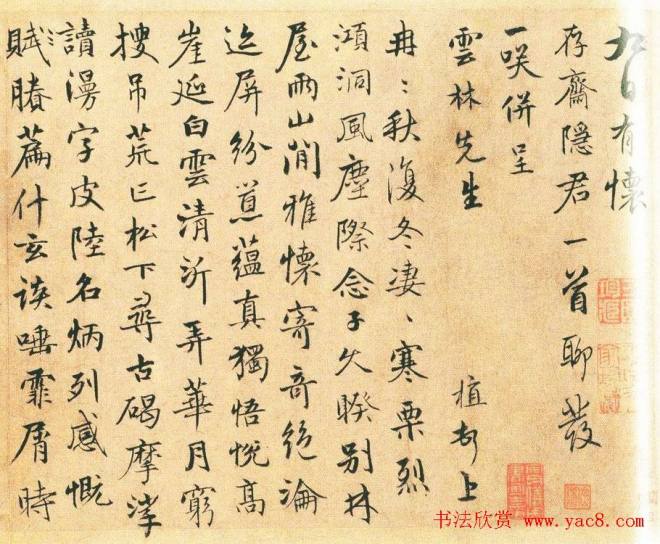 九日有懷
存齋隱君一首聊發
一咲併呈
雲林先生 植上
冉〻秋復冬淒〻寒栗烈
澒洞風塵際念子久睽別林
屋兩山間雅懷寄奇絕淪
迹屏紛蘊真獨悟悅高
崖延白雲清沂弄華月窮
搜吊荒亡松下尋古碣摩挲
讀漫字皮陸名炳列感慨
賦賸篇什玄談唾霏屑時
书法欣赏 www.yac8.com